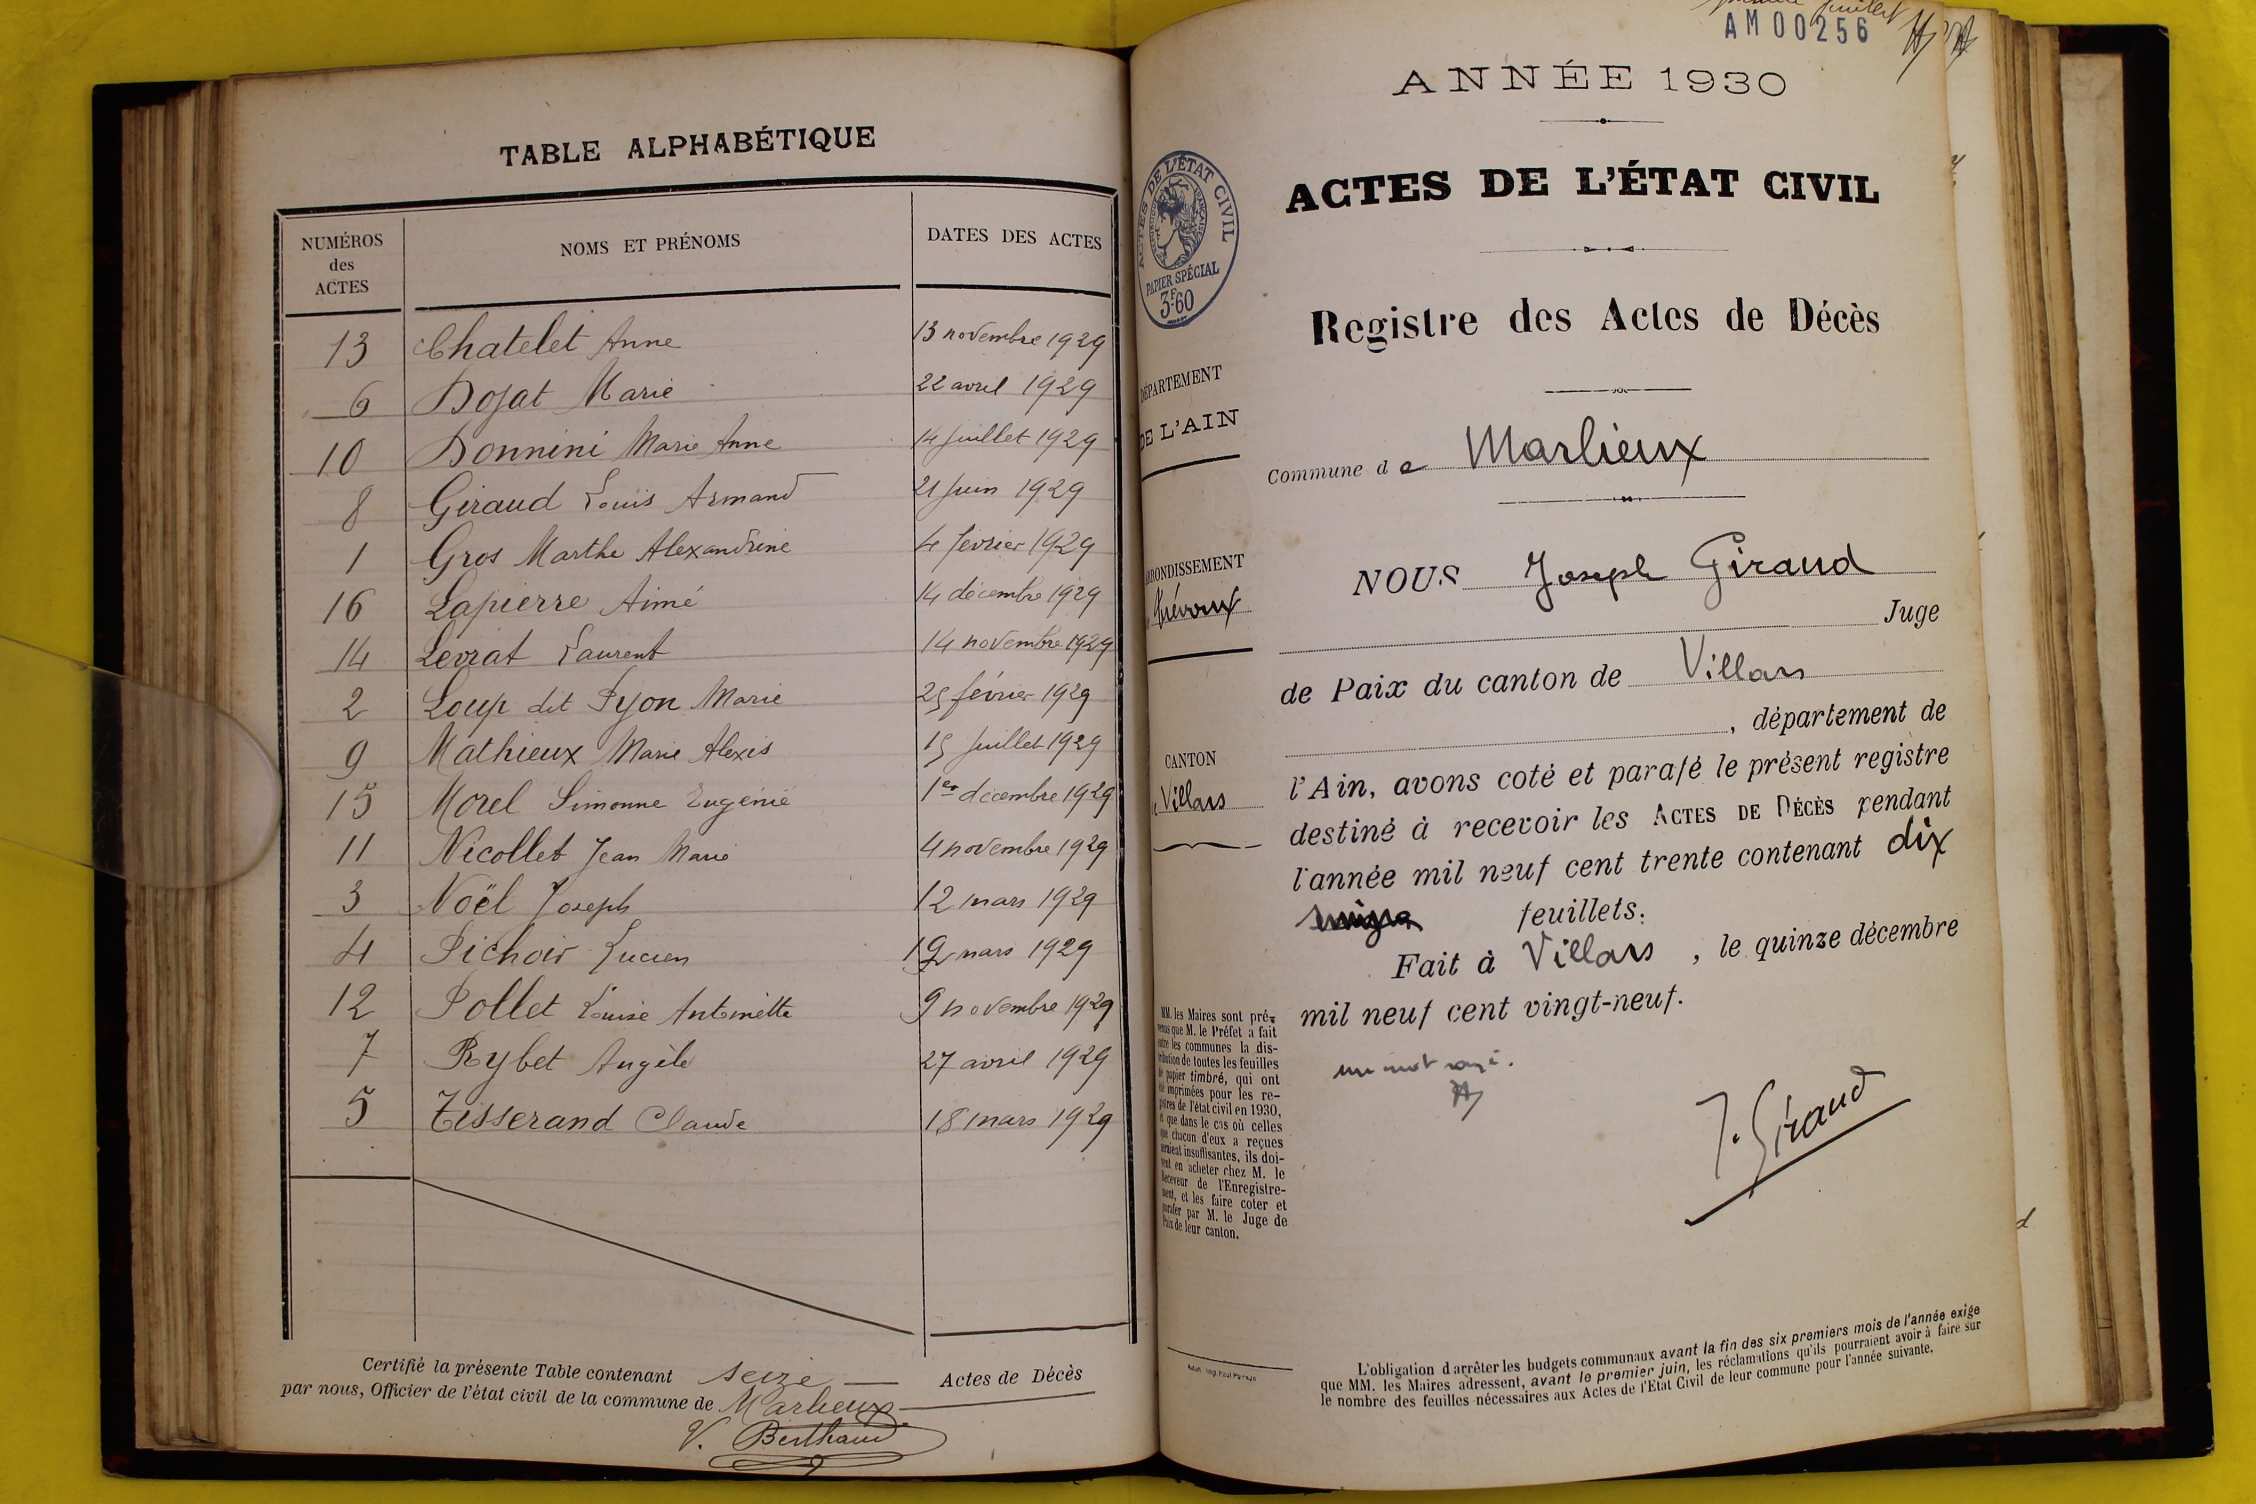 TABLE ALPHABÉTIQUE
NUMÉROS des ACTES NOMS ET PRÉNOMS DATES DES ACTES
13 Chatelet Anne 13 novembre 1929
6 Dojat Marie 22 avril 1929
10 Donnini Marie Anne 14 juillet 1929
8 Giraud Louis Armand 21 juin 1929
1 Gros Marthe Alexandrine 4 février 1929
16 Lapierre Aimé 14 décembre 1929
14 Levrat Laurent 14 novembre 1929
2 Loup dit Lyon Marie 25 février 1929
9 Mathieux Marie Alexis 15 juillet 1929
15 Morel Simonne Eugénie 1er décembre 1929
11 Nicollet Jean Marie 4 novembre 1929
3 Noël Joseph 12 mars 1929
4 Pichoir Lucien mars 1929
12 Pollet Louise Antoinette 9 novembre 1929
7 Rybet Angèle 27 avril 1929
5 Tisserand Claude 18 mars 1929
Certifié la présente Table contenant seize Actes de Décès
par nous, Officier de l'état civil de la commune de Marlieux
V. Berthaud
AM00256
ANNÉE 1930
ACTES DE L'ÉTAT CIVIL
ACTES DE L'ÉTAT CIVIL
PAPIER SPÉCIAL
3F.60
Registre des Actes de Décès
DÉPARTEMENT
DE L'AIN
Commune de Marlieux
ARRONDISSEMENT
Trévoux
CANTON
Villars
NOUS Joseph Giraud
Juge
de Paix du canton de Villars
, département de
l'Ain, avons coté et parafé le présent registre
destiné à recevoir les ACTES DE DÉCÈS pendant
l'année mil neuf cent trente contenant dix
feuillets.
Fait à Villars, le quinze décembre
mil neuf cent vingt-neuf.
un mot rayé.
J. Giraud
MM. les Maires sont pré-
venus que M. le Préfet a fait
entre les communes la dis-
tribution de toutes les feuilles
de papier timbré, qui ont
été imprimées pour les re-
gistres de l'état civil en 1930,
et que dans le cas où celles
que chacun d'eux a reçues
seraient insuffisantes, ils doi-
vent en acheter chez M. le
Receveur de l'Enregistre-
ment, et les faire coter et
parafer par M. le Juge de
Paix de leur canton.
L'obligation d'arrêter les budgets communaux avant la fin des six premiers mois de l'année exige
que MM. les Maires adressent, avant le premier juin, les réclamations qu'ils pourraient avoir à faire sur
le nombre des feuilles nécessaires aux Actes de l'Etat Civil de leur commune pour l'année suivante.